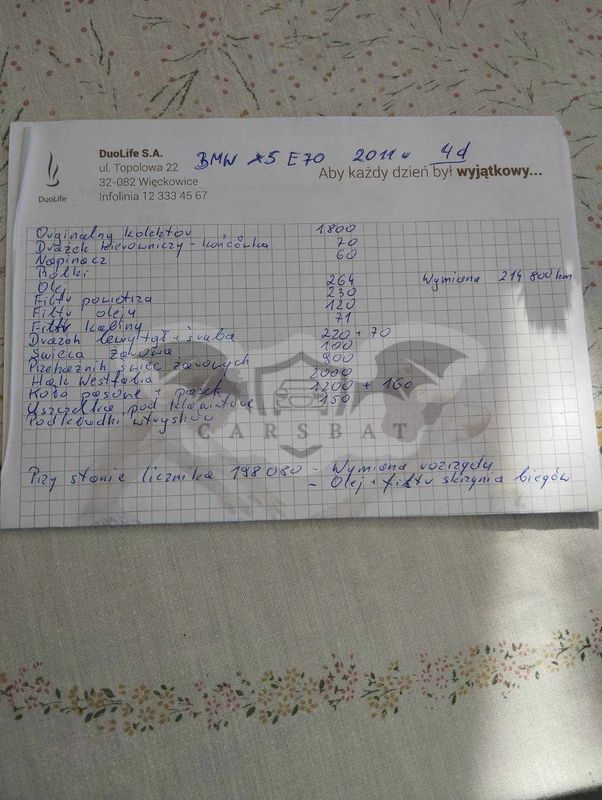 DuoLife S.A.
ul. Topolowa 22
32-082 Więckowice
Infolinia 12 333 45 67
DuoLife
BMW X5 E70 2011r 4d
Aby każdy dzień był wyjątkowy...
Oryginalny kolektor 1800
Drążek kierowniczy - końcówka 70
Napinacz 60
Rolki
Olej 264 Wymiana 214 800 km
Filtr powietrza 230
Filtr oleju 120
Filtr kabiny 71
Drążek lewy tył + śruba 220 + 70
Świeca żarowa 100
Przekaźnik świec żarowych 900
Hak Westfalia 2000
Koło pasowe + pasek 1200 + 160
Uszczelka pod klawiaturę 150
Podkładki wtrysków
CARSBAT
Przy stanie licznika 198 080 - Wymiana rozrządu
- Olej + filtr skrzynia biegów